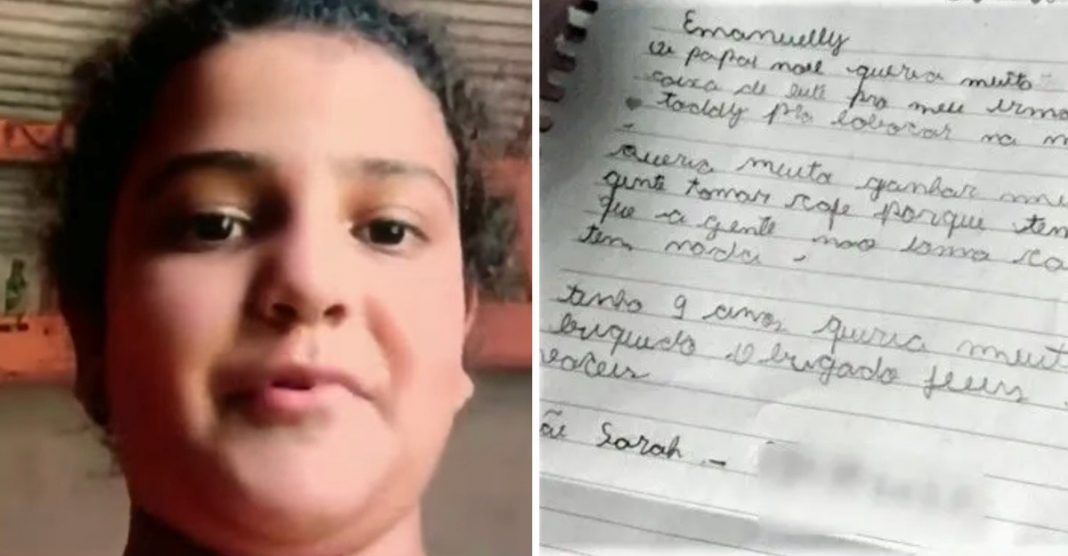 Emanuelly
papai noel queria muito
caixa de leite pro meu irmã
toddy pra colocar na m
queria muito ganhar
gente tomar cafe porque tem
que a gente nao toma ca
tem nada.
tenho 9 anos queria muit
briquedo obrigado jesus
Sarah -